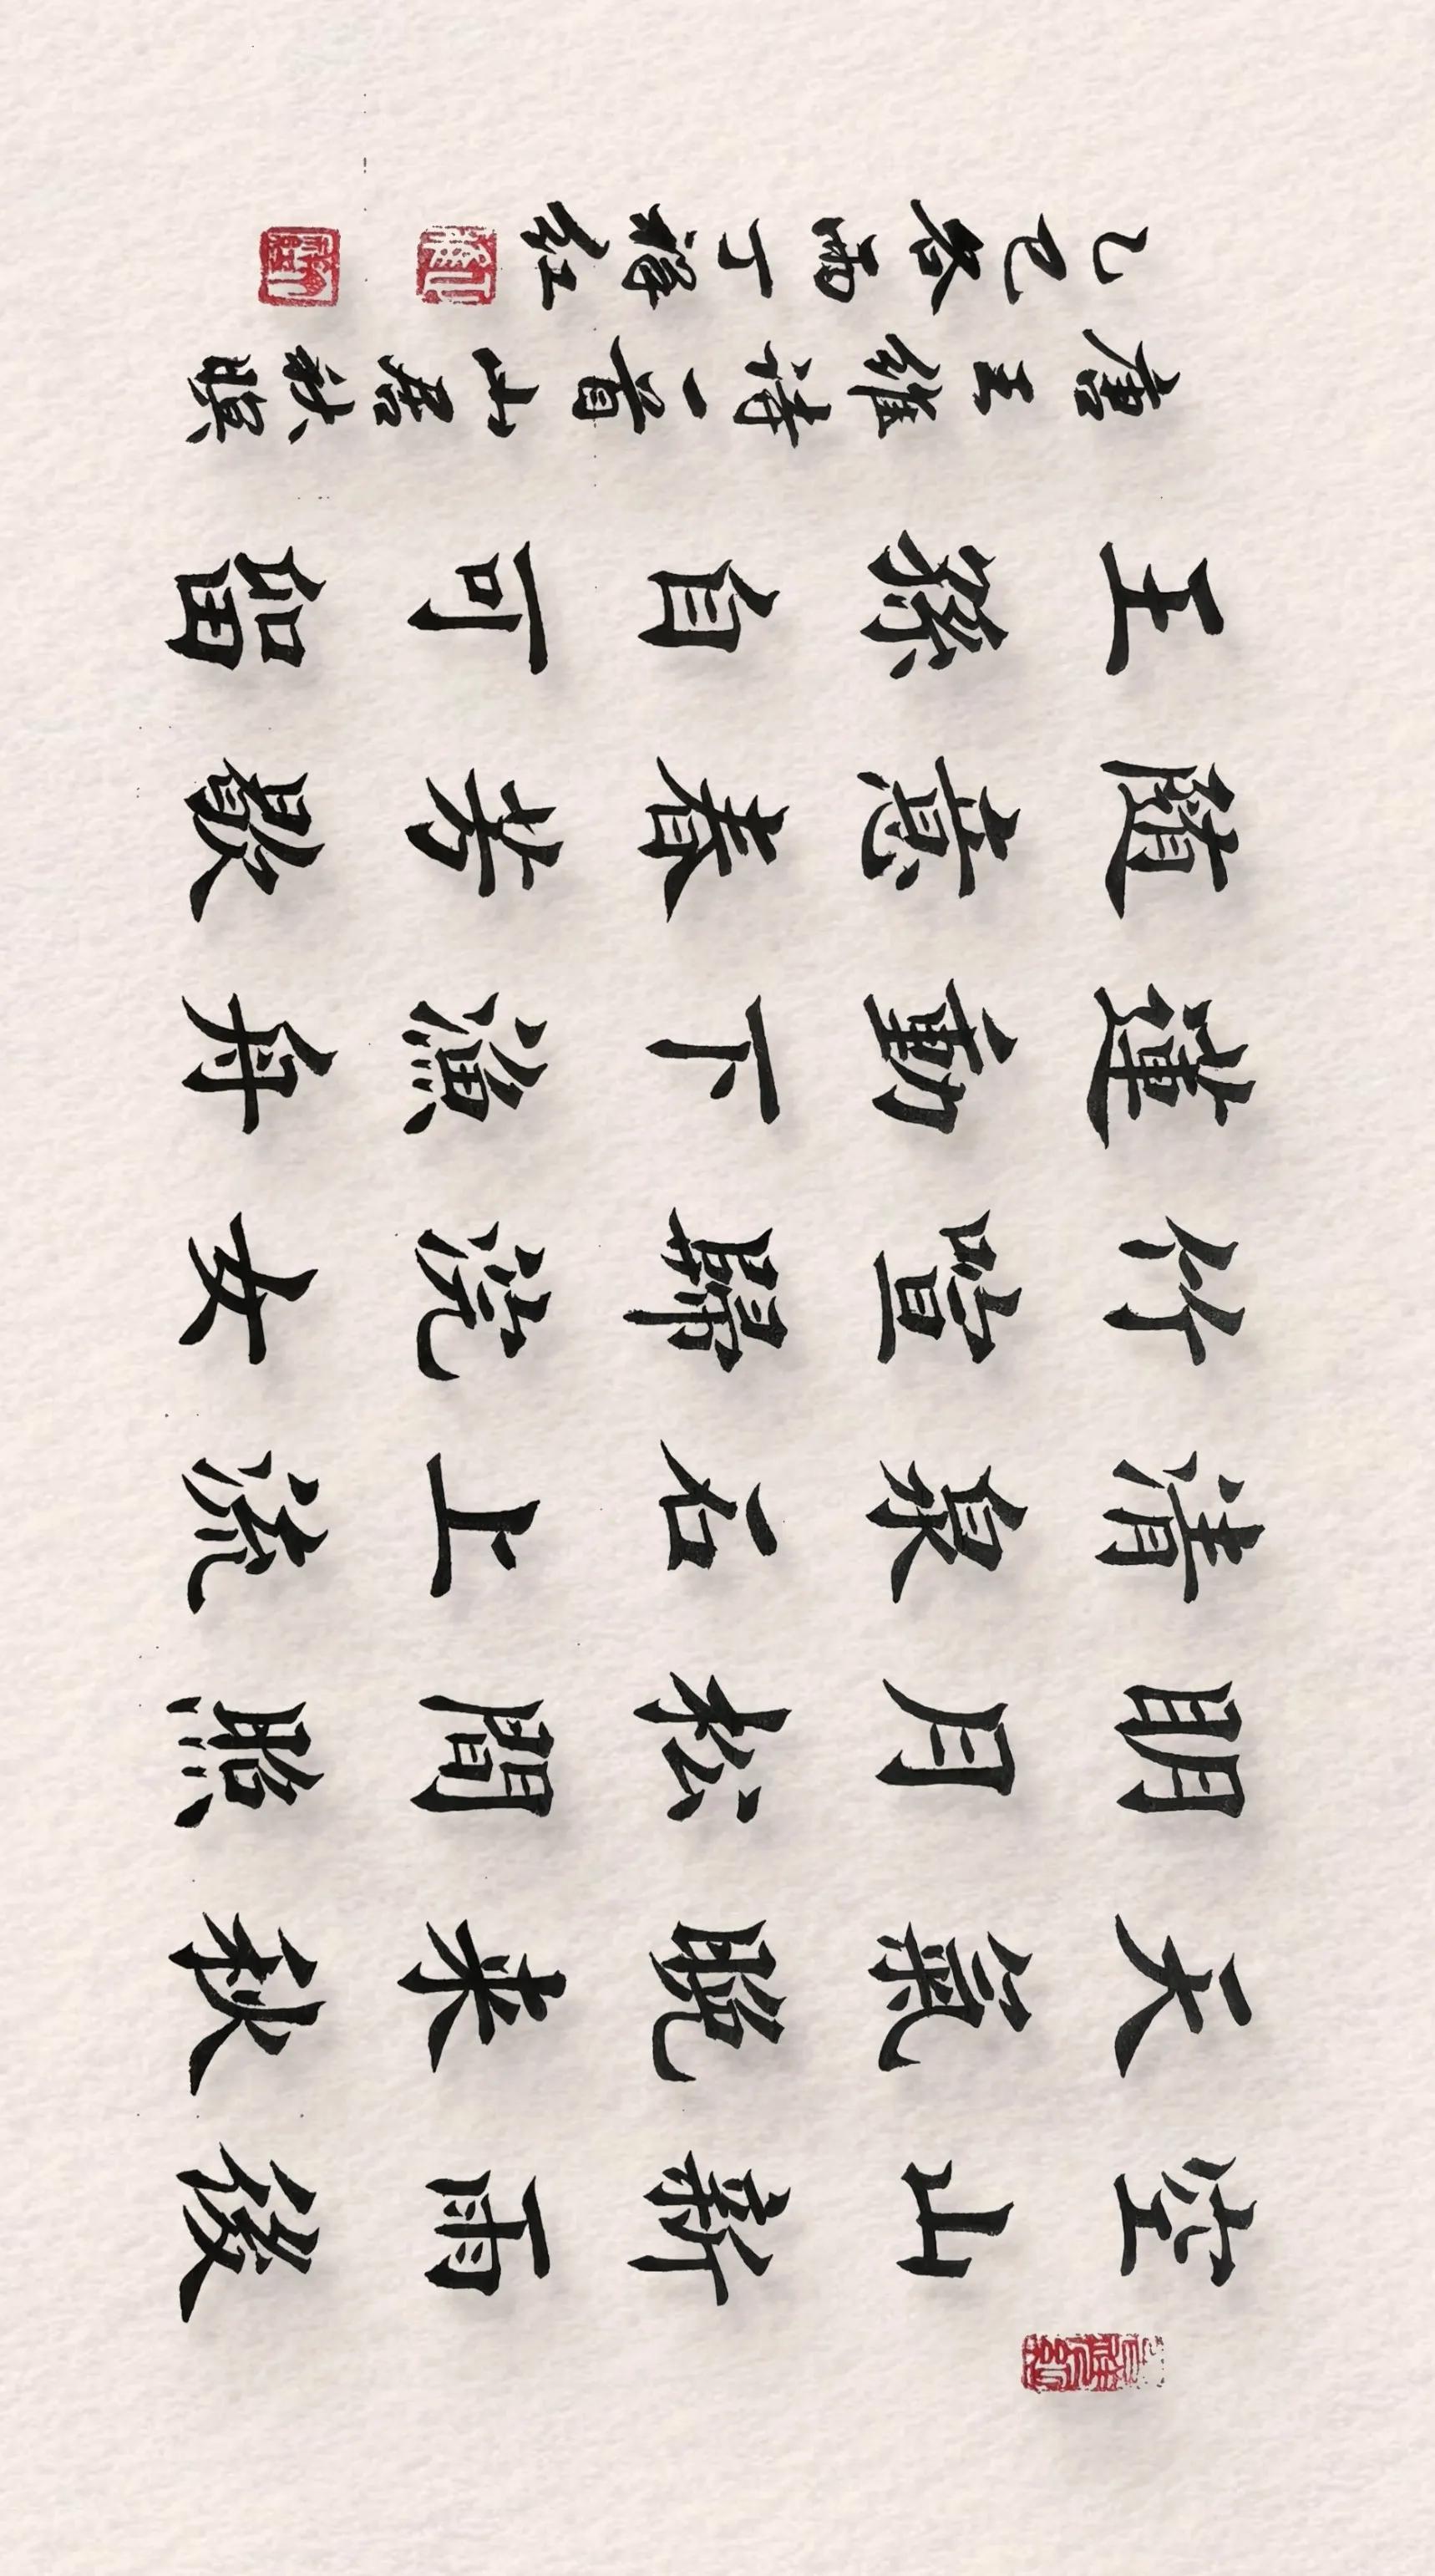 空山新雨後
天氣晚来秋
明月松間照
清泉石上流
竹喧歸浣女
蓮動下漁舟
随意春芳歇
王孫自可留
唐王維詩一首山居秋暝
乙巳谷雨丁紅